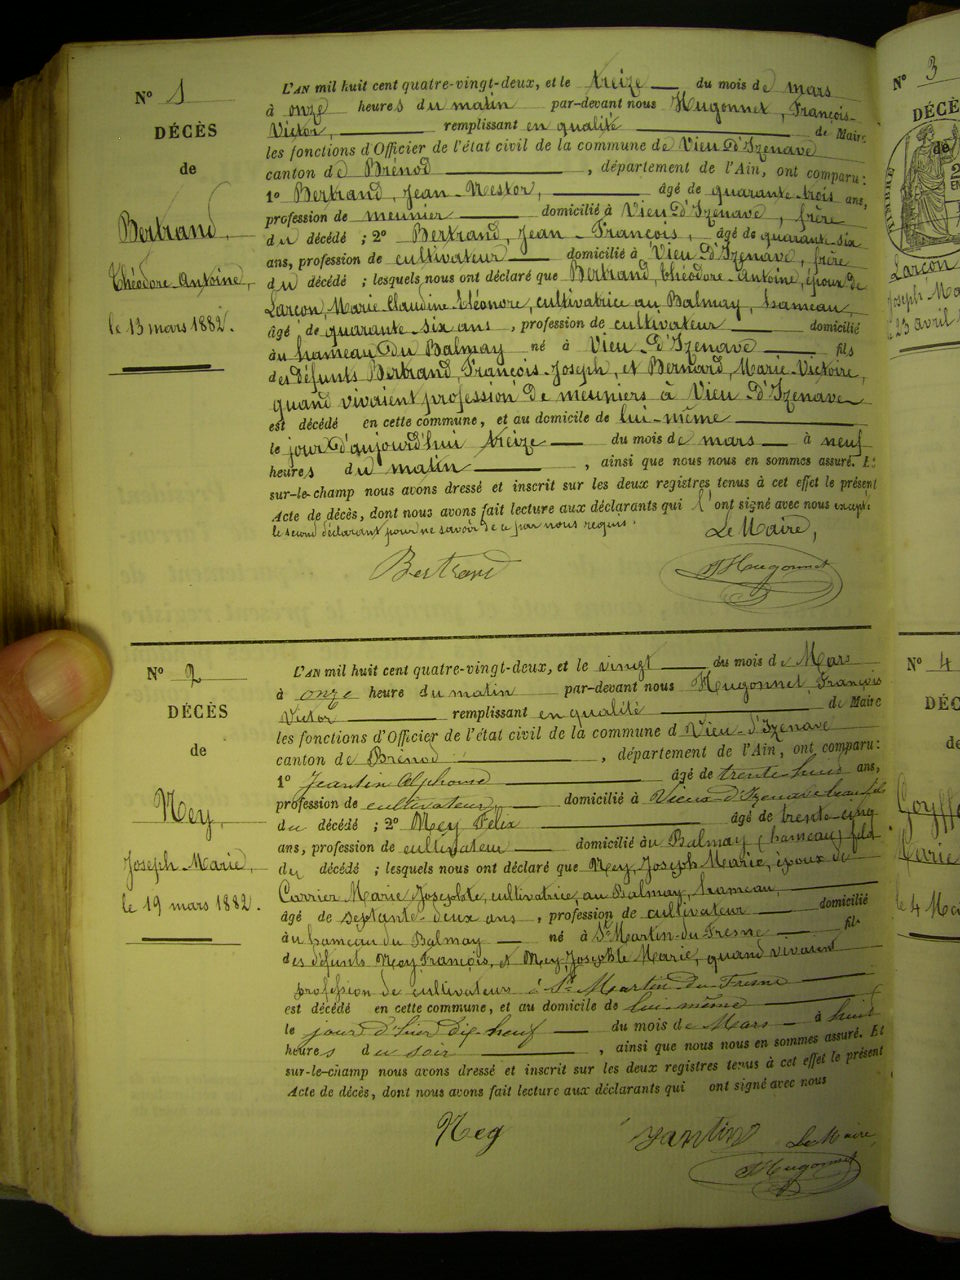 N° 1
DÉCÈS
de
Bertrand,
Théodore Antoine,
le 13 mars 1882.
L'AN mil huit cent quatre-vingt-deux, et le treize du mois de mars
à onze heures du matin par-devant nous Hugonnet, François-
Victor, remplissant en qualité de Maire
les fonctions d'Officier de l'état civil de la commune de Vieu-D'Izenave
canton de Brénod, département de l'Ain, ont comparu:
1° Bertrand, Jean-Nestor, âgé de quarante-trois ans,
profession de meunier domicilié à Vieu-D'Izenave, frère
du décédé ; 2° Bertrand, Jean-François, âgé de quarante-six
ans, profession de cultivateur domicilié à Vieu-D'Izenave, frère
du décédé ; lesquels nous ont déclaré que Bertrand, théodore-Antoine, époux de
Larçon, Marie Claudine Eléonore, cultivatrice au Balmay, hameau,
âgé de quarante six ans, profession de cultivateur domicilié
au hameau Du Balmay né à Vieu-D'Izenave fils
des défunts Bertrand, François-Joseph, et Bernard, Marie-Victoire,
quand vivaient profession De meuniers à Vieu-D'Izenave
est décédé en cette commune, et au domicile de lui-même
le jour D'aujourd'hui treize du mois de mars à neuf
heures du matin, ainsi que nous nous en sommes assuré. Et
sur-le-champ nous avons dressé et inscrit sur les deux registres tenus à cet effet le présent
Acte de décès, dont nous avons fait lecture aux déclarants qui l'ont signé avec nous excepté
le second déclarant pour ne savoir de ce par nous requis.
Le Maire,
Bertrand
Hugonnet
N° 2
DÉCÈS
de
Mey,
Joseph Marie,
le 19 mars 1882.
L'AN mil huit cent quatre-vingt-deux, et le vingt du mois de Mars
à onze heure du matin par-devant nous Hugonnet, François
Victor remplissant en qualité de Maire
les fonctions d'Officier de l'état civil de la commune d Vieu-d'Izenave
canton de Brénod, département de l'Ain, ont comparu:
1° Jeantin Alphonse âgé de trente-huit ans,
profession de cultivateur domicilié à Vieux-d'Izenave beau fils
du décédé ; 2° Mey Félix âgé de trente-cinq
ans, profession de cultivateur domicilié au Balmay (hameau) fils
du décédé ; lesquels nous ont déclaré que Mey, Joseph Marie, époux de
Carrier Marie Josephte, cultivatrice, au Balmay, hameau,
âgé de septante-deux ans, profession de cultivateur domicilié
au hameau du Balmay né à St Martin-du-Fresne fils
des défunts Mey François, et Mey, Josephte Marie, quand vivaient
profession de cultivateurs à St Martin-du-Fresne
est décédé en cette commune, et au domicile de lui-même
le jour d'hier dix-neuf du mois de Mars à huit
heures du soir, ainsi que nous nous en sommes assuré. Et
sur-le-champ nous avons dressé et inscrit sur les deux registres tenus à cet effet le présent
Acte de décès, dont nous avons fait lecture aux déclarants qui ont signé avec nous
Mey
Jantin
Le Maire,
Hugonnet
N° 3
DÉCÈ
de
Larçon
Joseph Ma
23 avril
N° 4
DÉC
de
Marie
le 4 Ma